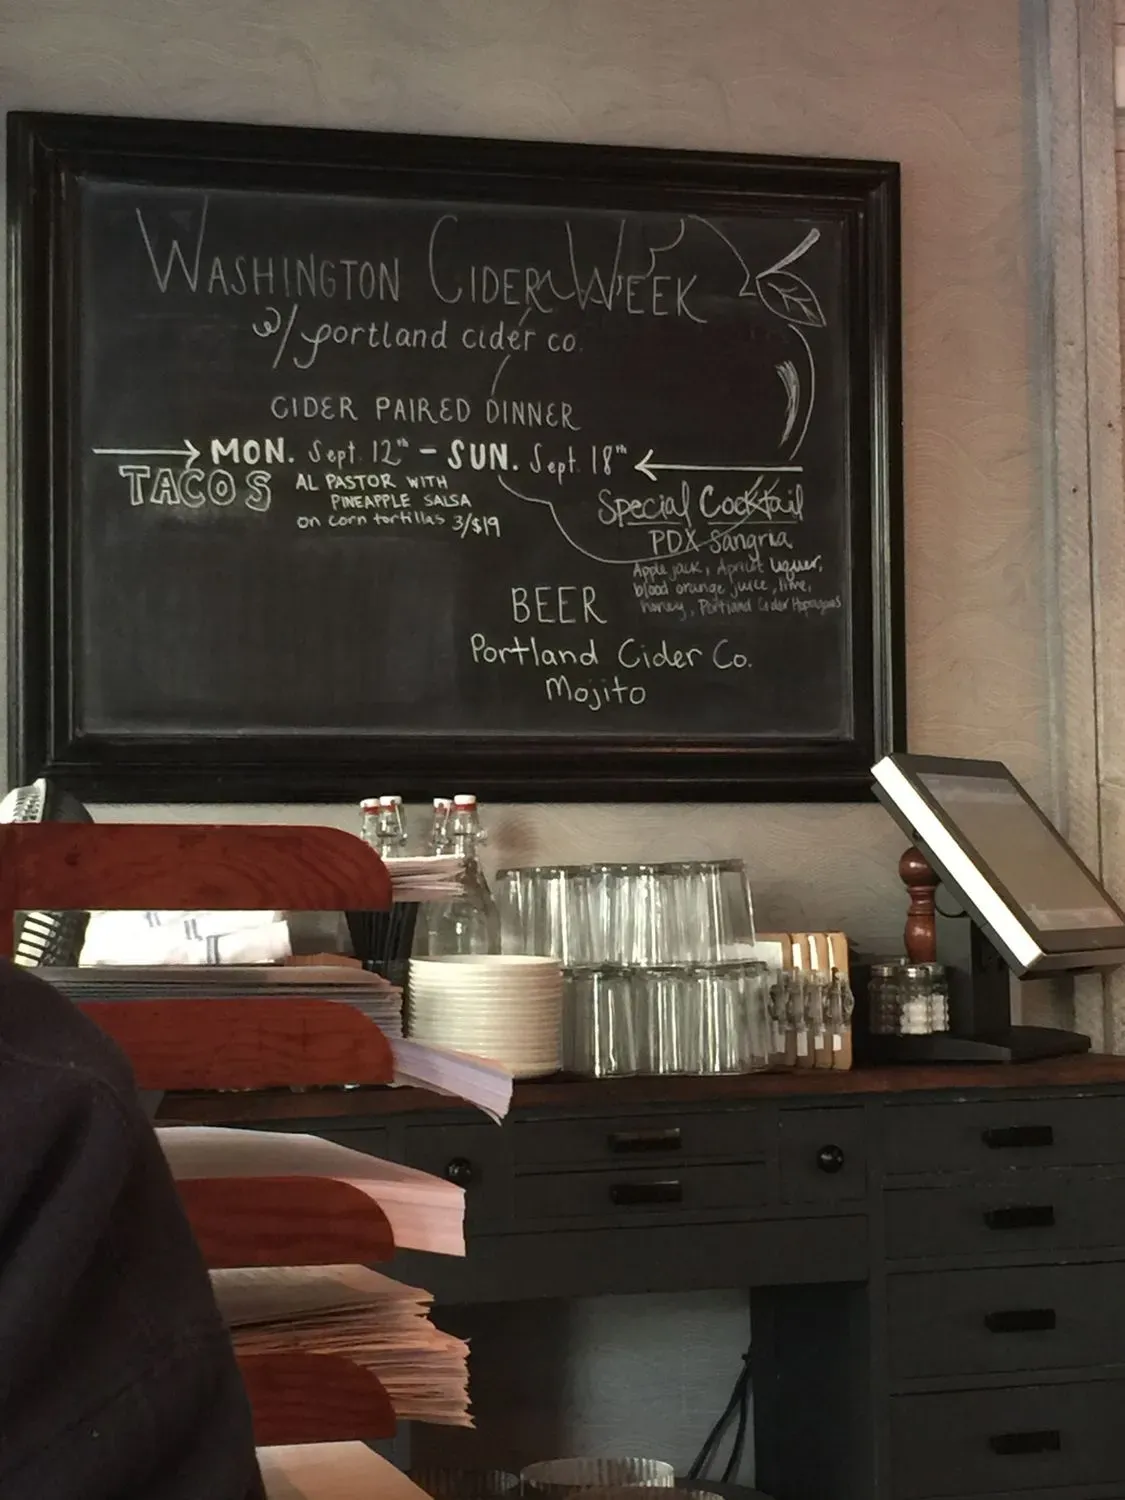 WASHINGTON CIDER WEEK
w/ portland cider co.
CIDER PAIRED DINNER
MON. Sept. 12th - SUN. Sept. 18th
TACOS AL PASTOR WITH
PINEAPPLE SALSA
on corn tortillas 3/$19
Special Cocktail
PDX Sangria
Apple jack, Apricot liquer,
blood orange juice, lime,
honey, Portland Cider
BEER
Portland Cider Co.
Mojito